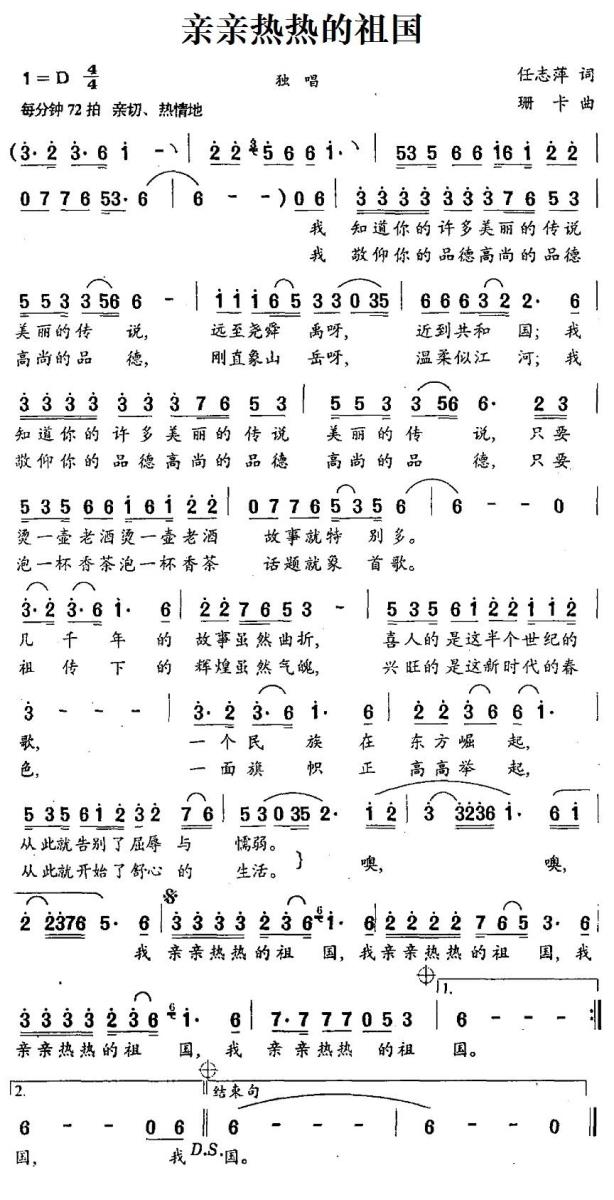 亲亲热热的祖国
1=D 4/4 独唱 任志萍 词
每分钟72拍 亲切、热情地 珊卡 曲
(3· 2 3· 6 1 - | 2 2 3 5 6 6 1· | 53 5 6 6 16 1 2 2 |
0 7 7 6 53· 6 | 6 - - ) 0 6 | 3 3 3 3 3 3 3 7 6 5 3 |
我 知道你的许多美丽的传说
我 敬仰你的品德高尚的品德
5 5 3 3 56 6 - | 1 1 1 6 5 3 3 0 35 | 6 6 6 3 2 2· 6 |
美丽的传 说, 远至尧舜 禹呀, 近到共和 国; 我
高尚的品 德, 刚直象山 岳呀, 温柔似江 河; 我
3 3 3 3 3 3 3 7 6 5 3 | 5 5 3 3 56 6· 2 3 |
知道你的许多美丽的传说 美丽的传 说, 只要
敬仰你的品德高尚的品德 高尚的品 德, 只要
5 3 5 6 6 1 6 1 2 2 | 0 7 7 6 5 3 5 6 | 6 - - 0 |
烫一壶老酒烫一壶老酒 故事就特 别多。
泡一杯香茶泡一杯香茶 话题就象 首歌。
3· 2 3· 6 1· 6 | 2 2 7 6 5 3 - | 5 3 5 6 1 2 2 1 1 2 |
几 千 年 的 故事虽然曲折, 喜人的是这半个世纪的
祖 传 下 的 辉煌虽然气魄, 兴旺的是这新时代的春
3 - - - | 3· 2 3· 6 1· 6 | 2 2 3 6 6 1· |
歌, 一个民 族 在 东方崛 起,
色, 一面旗 帜 正 高高举 起,
5 3 5 6 1 2 3 2 7 6 | 5 3 0 35 2· 1 2 | 3 3236 1· 6 1 |
从此就告别了屈辱 与 懦弱。
从此就开始了舒心 的 生活。} 噢, 噢,
2 2376 5· 6 | 3 3 3 3 2 3 6 6 1· 6 | 2 2 2 2 7 6 5 3· 6 |
我 亲亲热热的祖 国, 我亲亲热热的祖 国, 我
1.
3 3 3 3 2 3 6 6 1· 6 | 7· 7 7 7 0 5 3 | 6 - - - :||
亲亲热热的祖 国, 我 亲亲热热 的祖 国。
2. 结束句
6 - - 0 6 || 6 - - - | 6 - - 0 ||
国, 我 D.S. 国。